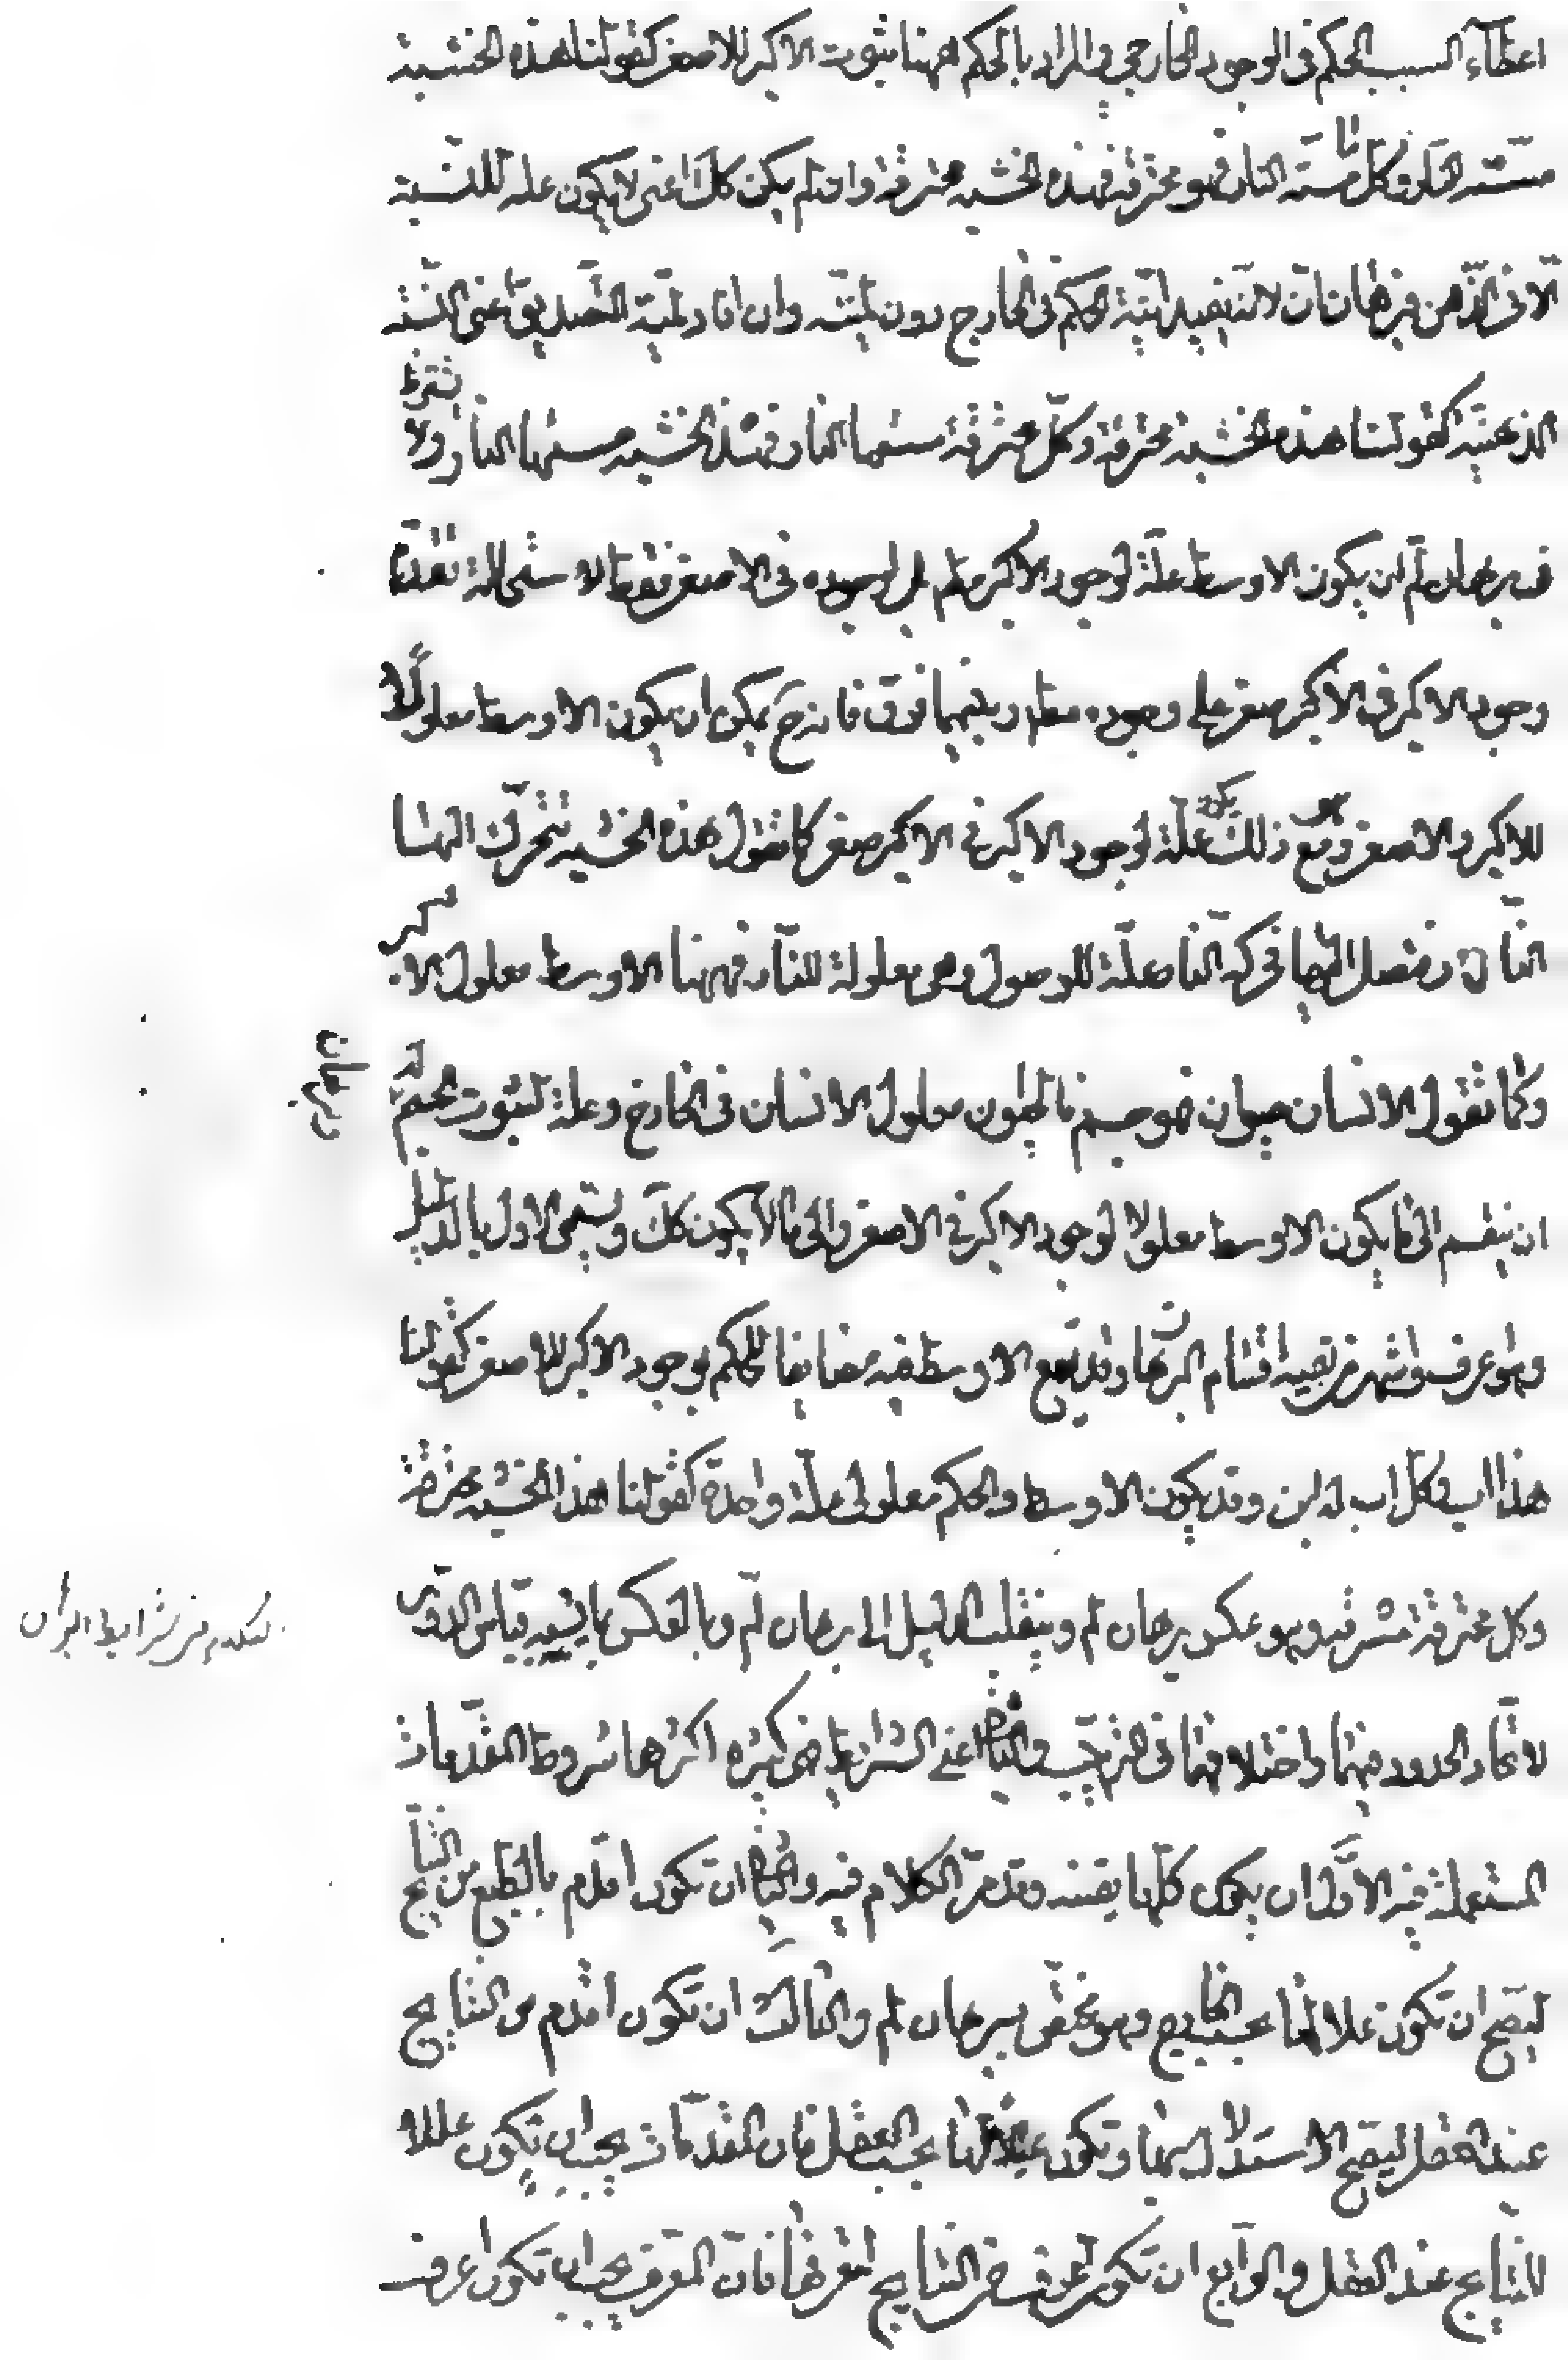 اعطاء السبب الحكم فى الوجود الخارجي والمراد بالحكم ههنا ثبوت الاكبر للاصغر كقولنا هذه الخشبة
مسته النار وكل ما مسته النار فهو محترقة فهذه الخشبه محترقة وان لم يكن كك اعنى لا يكون علة للنسبة
الا فى الذهن فبرهان ان لانه يفيد انية الحكم فى الخارج دون لميته وان افاد لمية التصديق اعنى النسبة
الذهنية كقولنا هذه الخشبة محترقة وكل محترقة مسها النار فهذه الخشبه مستها النار ولا يشترط
فى برهان لم ان يكون الاوسط علة لوجود الاكبر بل لوجوده فى الاصغر فقط
وجود الاكبر فى الاكبر صغر على وجوده مطلقا وبينهما فرق فانه ح يمكن ان يكون الاوسط معلولا
للاكبر والاصغر ومع ذلك يكون علة لوجود الاكبر فى الاكبر صغر كما نقول هذه الخشبه تتحرك اليها
النار فتصل اليها فحركة النار علة للوصول وهى معلولة للنار فههنا الاوسط معلول الاكبر
وكما نقول الانسان حيوان فهو جسم فالحيوان معلول الانسان فى الخارج وعلة لثبوت الجسم له
وبرهان
ان ينقسم الى ما يكون الاوسط معلولا لوجود الاكبر فى الاصغر والى ما لا يكون كك ويسمى الاول بالدليل
وهو اعرف واشهر من بقيه اقسام البرهان وقد يقع الاوسط فيه مضايفا للحكم بوجود الاكبر للاصغر كقولنا
هذا اب وكل اب له ابن وقد يكون الاوسط والحكم معلولى علة واحدة كقولنا هذا الخشبه محترقة
وكل محترقة مشرقة وهو عكس برهان لم وينقلب الدليل الى برهان لم وبالعكس بما يشبه قياس الدور
لاتحاد الحدود فيهما واختلافهما فى الترتيب والثانى اعنى الشرائط فهى كثيره اكثرها شروط المقدمات
المستعملة فيه الاول ان يكون كلها يقينية وقد مر الكلام فيه والثانى ان تكون اقدم بالطبع من النتايج
ليصح ان تكون عللا لها بحسب الخارج وهو يختص ببرهان لم والثالث ان تكون اقدم من النتايج
عند العقل ليصح الاستدلال بها وتكون عللا لها بحسب العقل فان المقدمات يجب ان تكون عللا
للنتايج عند العقل والرابع ان تكون اعرف من النتايج لتعرفها فان المعرف يجب ان تكون اعرف